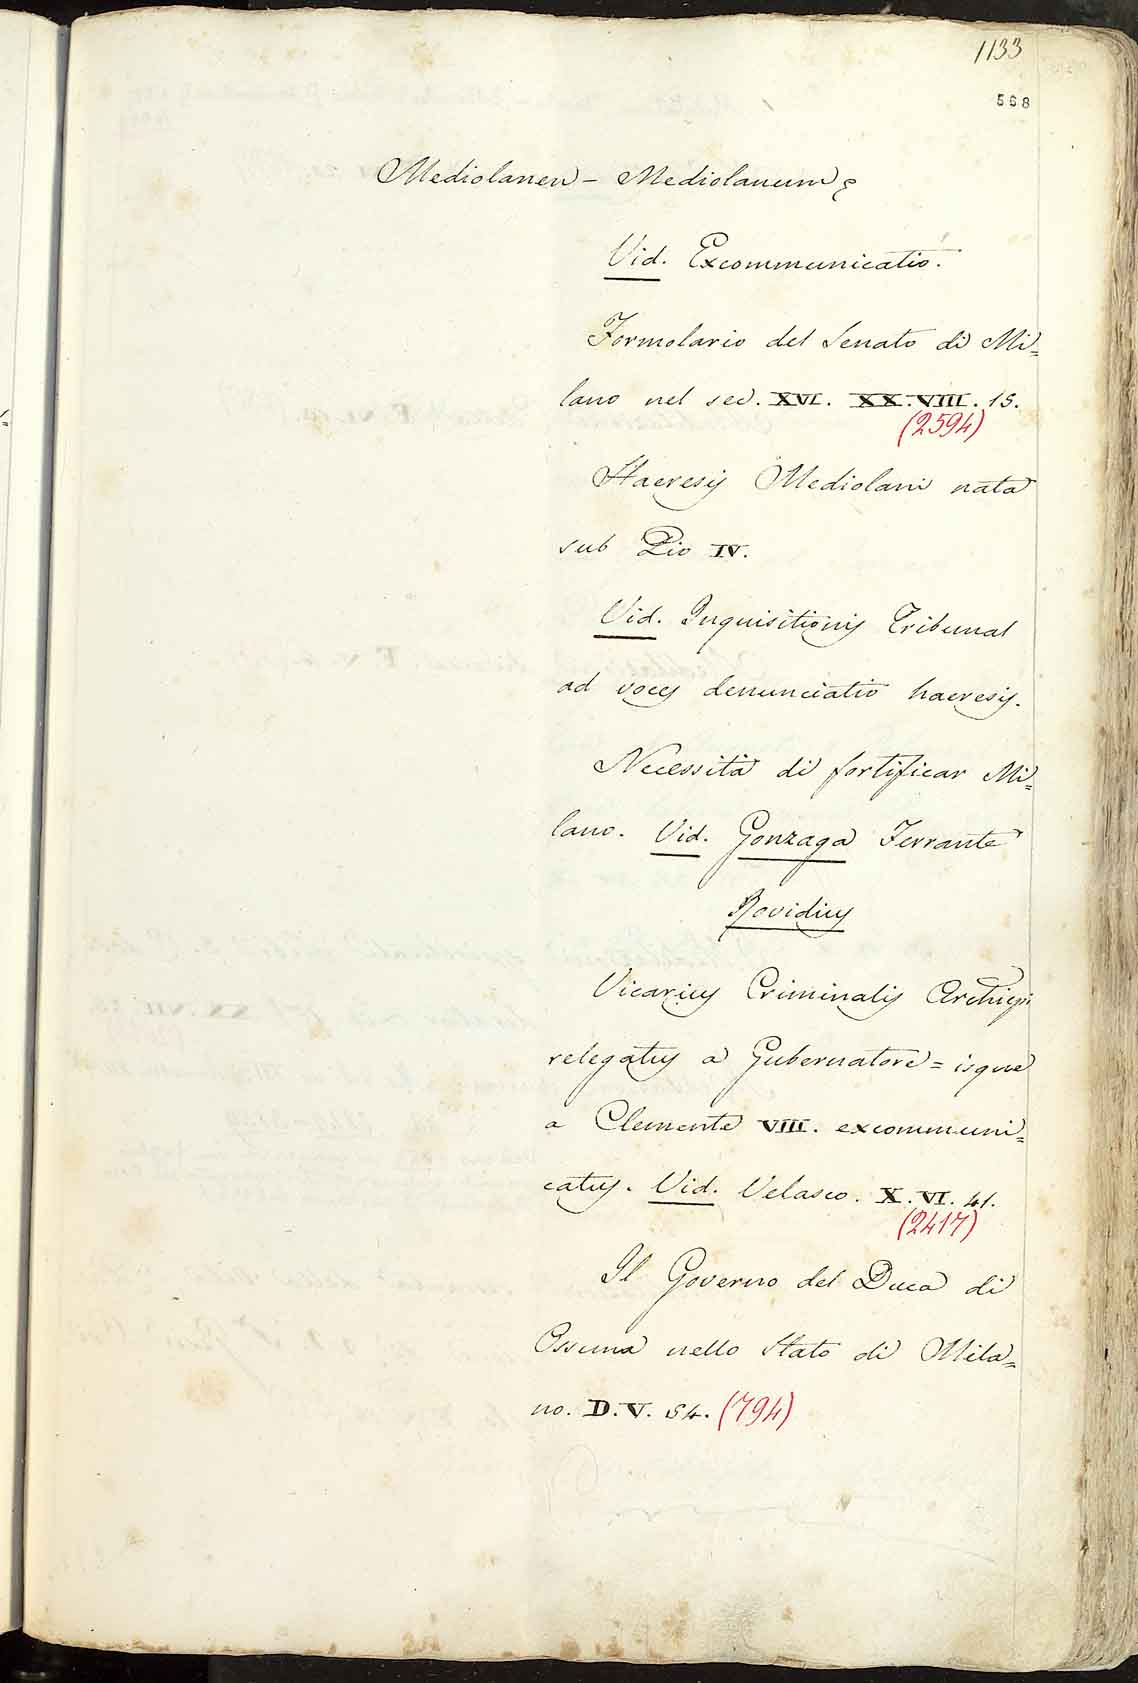 1133
568
Mediolanen – Mediolanum
Vid. Excommunicatio.
Formolario del Senato di Mi=
lano nel sec. XVI. XX.VIII. 15.
(2594)
Haeresis Mediolani nata
sub Pio IV.
Vid. Inquisitionis Tribunal
ad voces denunciatio haeresis.
Necessità di fortificar Mi=
lano. Vid. Gonzaga Ferrante
Rovidius
Vicarius Criminalis Archiepi
relegatus a Gubernatore = isque
a Clemente VIII. excommuni=
catus. Vid. Velasco. X.VI. 41.
(2417)
Il Governo del Duca di
Ossuna nello Stato di Mila=
no. D.V. 54. (794)